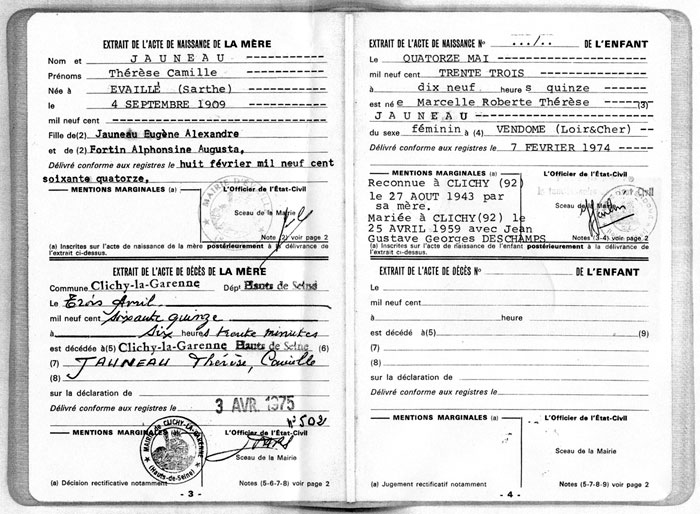 EXTRAIT DE L'ACTE DE NAISSANCE DE LA MÈRE
Nom et J A U N E A U
Prénoms Thérèse Camille
Née à EVAILLÉ (Sarthe)
le 4 SEPTEMBRE 1909
mil neuf cent
Fille de(2) Jauneau Eugène Alexandre
et de (2) Fortin Alphonsine Augusta,
Délivré conforme aux registres le huit février mil neuf cent
soixante quatorze,
MENTIONS MARGINALES (a)
L'Officier de l'État-Civil
Sceau de la Mairie
Note (2) voir page 2
(a) Inscrites sur l'acte de naissance de la mère postérieurement à la délivrance de l'extrait ci-dessus.
EXTRAIT DE L'ACTE DE DÉCÈS DE LA MÈRE
Commune Clichy-la-Garenne Dépt Hauts de Seine
Le Trois Avril
mil neuf cent soixante quinze
à six heures trente minutes
est décédée à(5) Clichy-la-Garenne Hauts de Seine (6)
(7) JAUNEAU Thérèse, Camille
(8)
sur la déclaration de
Délivré conforme aux registres le 3 AVR. 1975
n° 502
MENTIONS MARGINALES
L'Officier de l'État-Civil
MAIRIE de CLICHY-LA-GARENNE
(Hauts-de-Seine)
Sceau de la Mairie
(a) Décision rectificative notamment
Notes (5-6-7-8) voir page 2
- 3 -
EXTRAIT DE L'ACTE DE NAISSANCE N° .../.. DE L'ENFANT
Le QUATORZE MAI
mil neuf cent TRENTE TROIS
à dix neuf heure s quinze
est né e Marcelle Roberte Thérèse (3)
J A U N E A U
du sexe féminin à (4) VENDOME (Loir&Cher)
Délivré conforme aux registres le 7 FEVRIER 1974
MENTIONS MARGINALES (a)
L'Officier de l'État-Civil
Reconnue à CLICHY (92)
le 27 AOUT 1943 par
sa mère.
Sceau de la Mairie
Mariée à CLICHY(92) le
25 AVRIL 1959 avec Jean
Gustave Georges DESCHAMPS
Note (3-4) voir page 2
(a) Inscrites sur l'acte de naissance de l'enfant postérieurement à la délivrance de l'extrait ci-dessus.
EXTRAIT DE L'ACTE DE DÉCÈS N° DE L'ENFANT
Le
mil neuf cent
à heure
est décédé à(5) (9)
(7)
(8)
sur la déclaration de
Délivré conforme aux registres le
MENTIONS MARGINALES (a)
L'Officier de l'État-Civil
Sceau de la Mairie
(a) Jugement rectificatif notamment
Notes (5-7-8-9) voir page 2
- 4 -